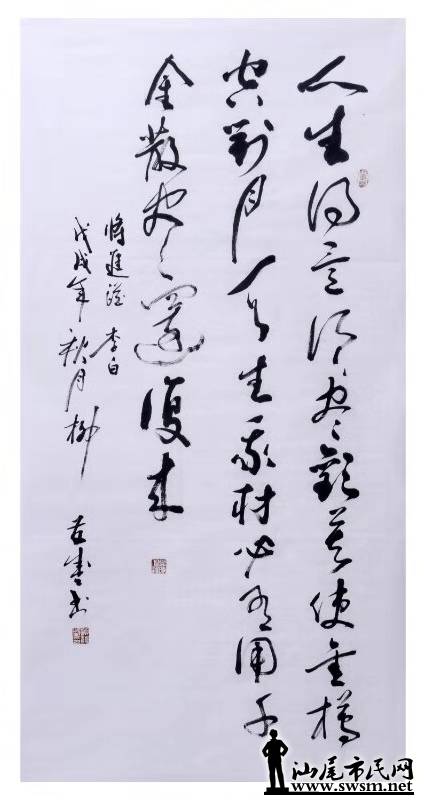 人生得意须尽歡莫使金樽
空對月天生我材必有用千
金散尽還復来
將進酒 李白
戊戌年秋月柳
汕尾市民网
www.swsm.net